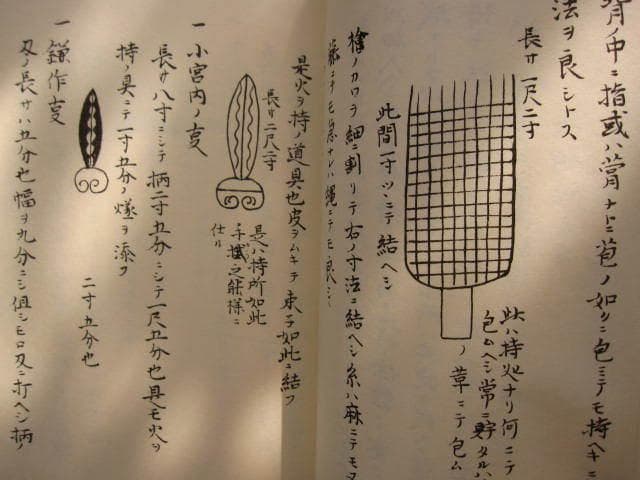 背ノ中ニ指或ハ嘗ナトニ苞ノ如クニ包ミテモ持ヘキニ
法ヲ良シトス
長サ一尺二寸
此ハ持処ナリ何ニテ
包ムヘシ常ニ貯タルハ
ノ草ニテ包ム
此間一寸ツヽニテ結ヘシ
檜ノカワラ細ニ割リテ右ノ寸法ニ結ヘシ糸ハ麻ニテモヌ
ニテモナレハ縄ニテモ良シ
是火ヲ持ノ道具也皮ヲムキテ束子如此ニ結フ
長サ二尺二寸
是ハ持所如此
手ノ様ニ
仕ル
一小宮内ノ㕝
長サ八寸ニシテ柄二寸五分ニシテ一尺五分也具モ火ヲ
持ノ具ニテ一寸五分ノヲ添フ
二寸五分也
一鎌作㕝
刃ノ長サハ五分也幅ヲ九分ニシ但シモロ刃ニ打ヘシ柄ノ